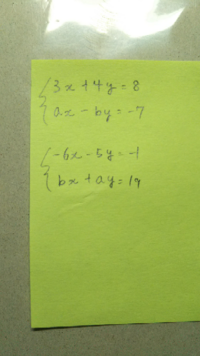 3x + 4y = 8
ax - by = -7
-6x - 5y = -1
bx + ay = 19